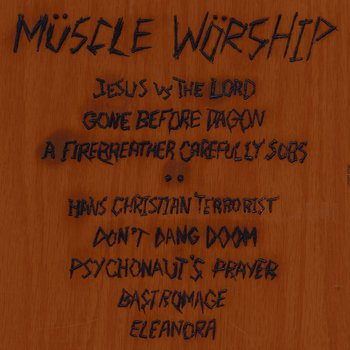 MÜSCLE WÖRSHIP
JESUS VS THE LORD
GONE BEFORE DAGON
A FIREBREATHER CAREFULLY SOBS
HANS CHRISTIAN TERRORIST
DON'T DANG DOOM
PSYCHONAUT'S PRAYER
BASTROMAGE
ELEANORA